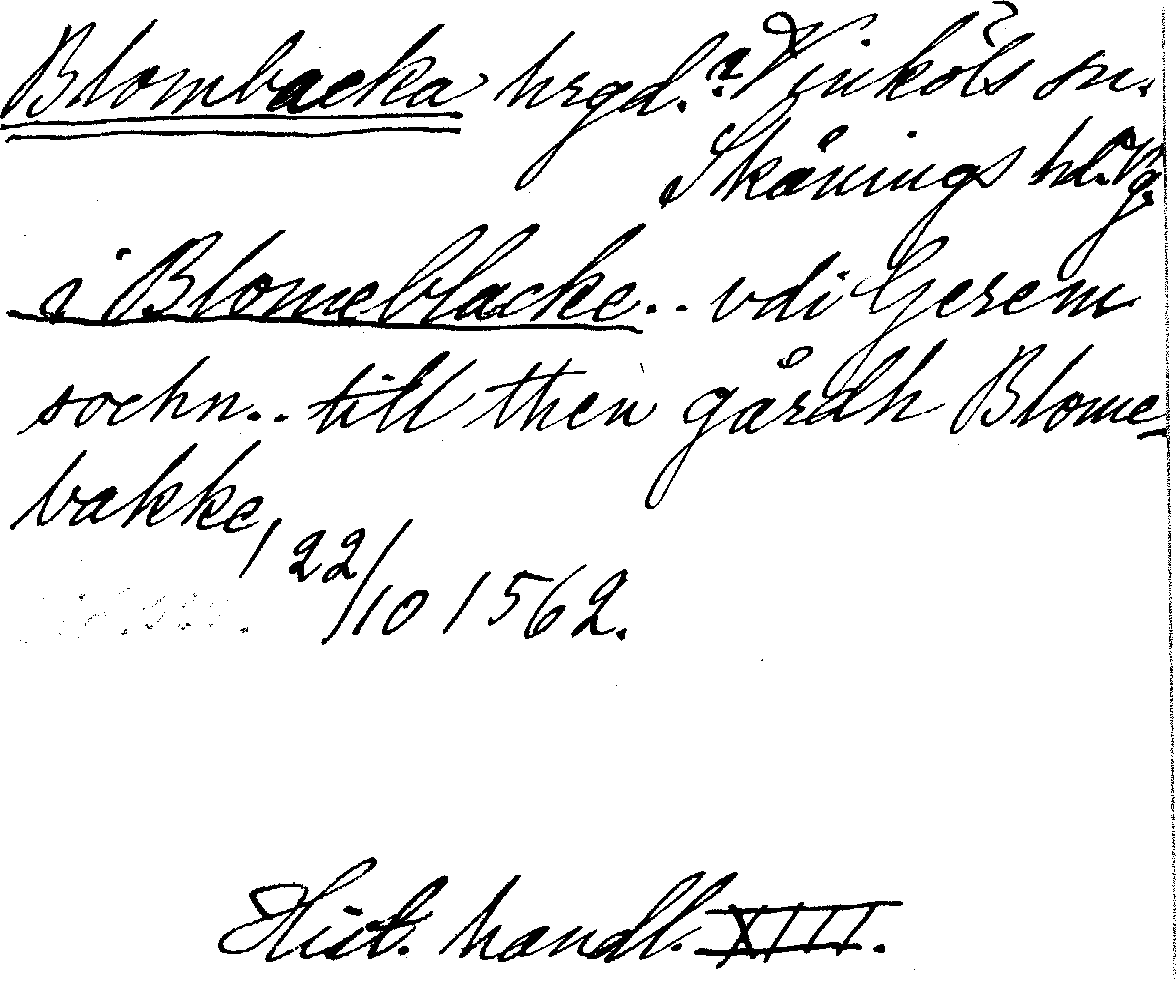 Blombacka hrgd.? Vinköls sn.
Skånings hd. Vg.
i Blomeblacke.. vdi Gerem
sochn.. till then gårdh Blome-
bakke
22/10 1562.
Hist. handl. XIII.